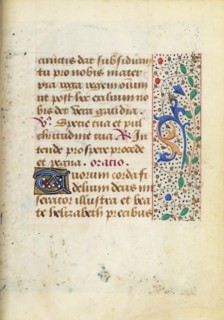 cunctis dat subsidium
tu pro nobis mater
pia regem omnium
ut post hoc exilium no
bis det vera gaudia.
V. Specie tua et pul
chritudine tua R. In
tende prospere procede
et regna. oratio.
Quorum corda fi
delium deus mi
serator illustra et bea
te helizabeth precibus